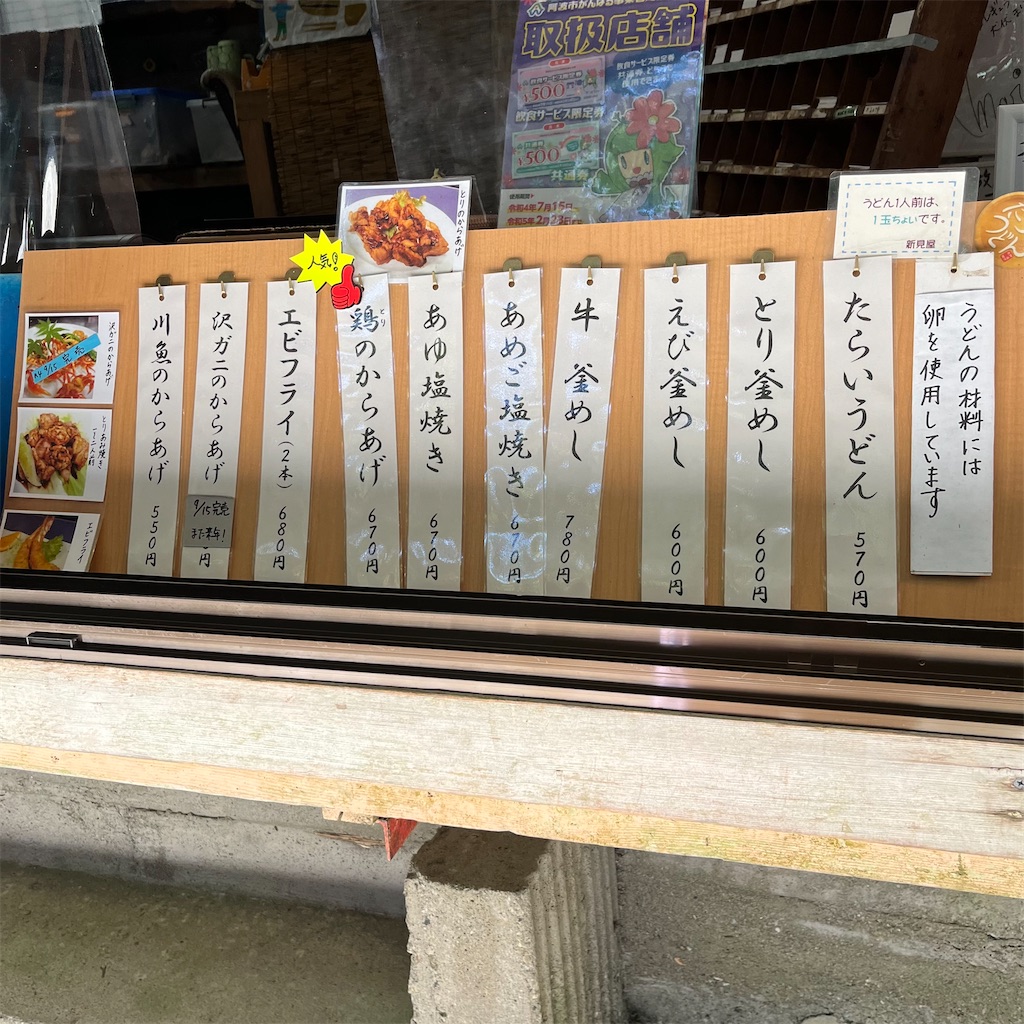 阿波市がんばる事業者
取扱店舗
¥500
飲食サービス限定券
¥500
共通券
飲食サービス限定券
共通券
令和4年7月15日
令和5年2月23日
うどん1人前は、
1玉ちょいです。
新見屋
うどんの材料には
卵を使用しています
たらいうどん 570円
とり釜めし 600円
えび釜めし 600円
牛 釜めし 780円
あめご塩焼き 670円
あゆ塩焼き 670円
とりのからあげ
人気!
鶏のからあげ 670円
とり
エビフライ(2本) 680円
沢ガニのからあげ 円
9/15完売
また来年!
川魚のからあげ 550円
沢ガニのからあげ
9/15 完売
とりあみ焼き
一〜二人前
エビフライ